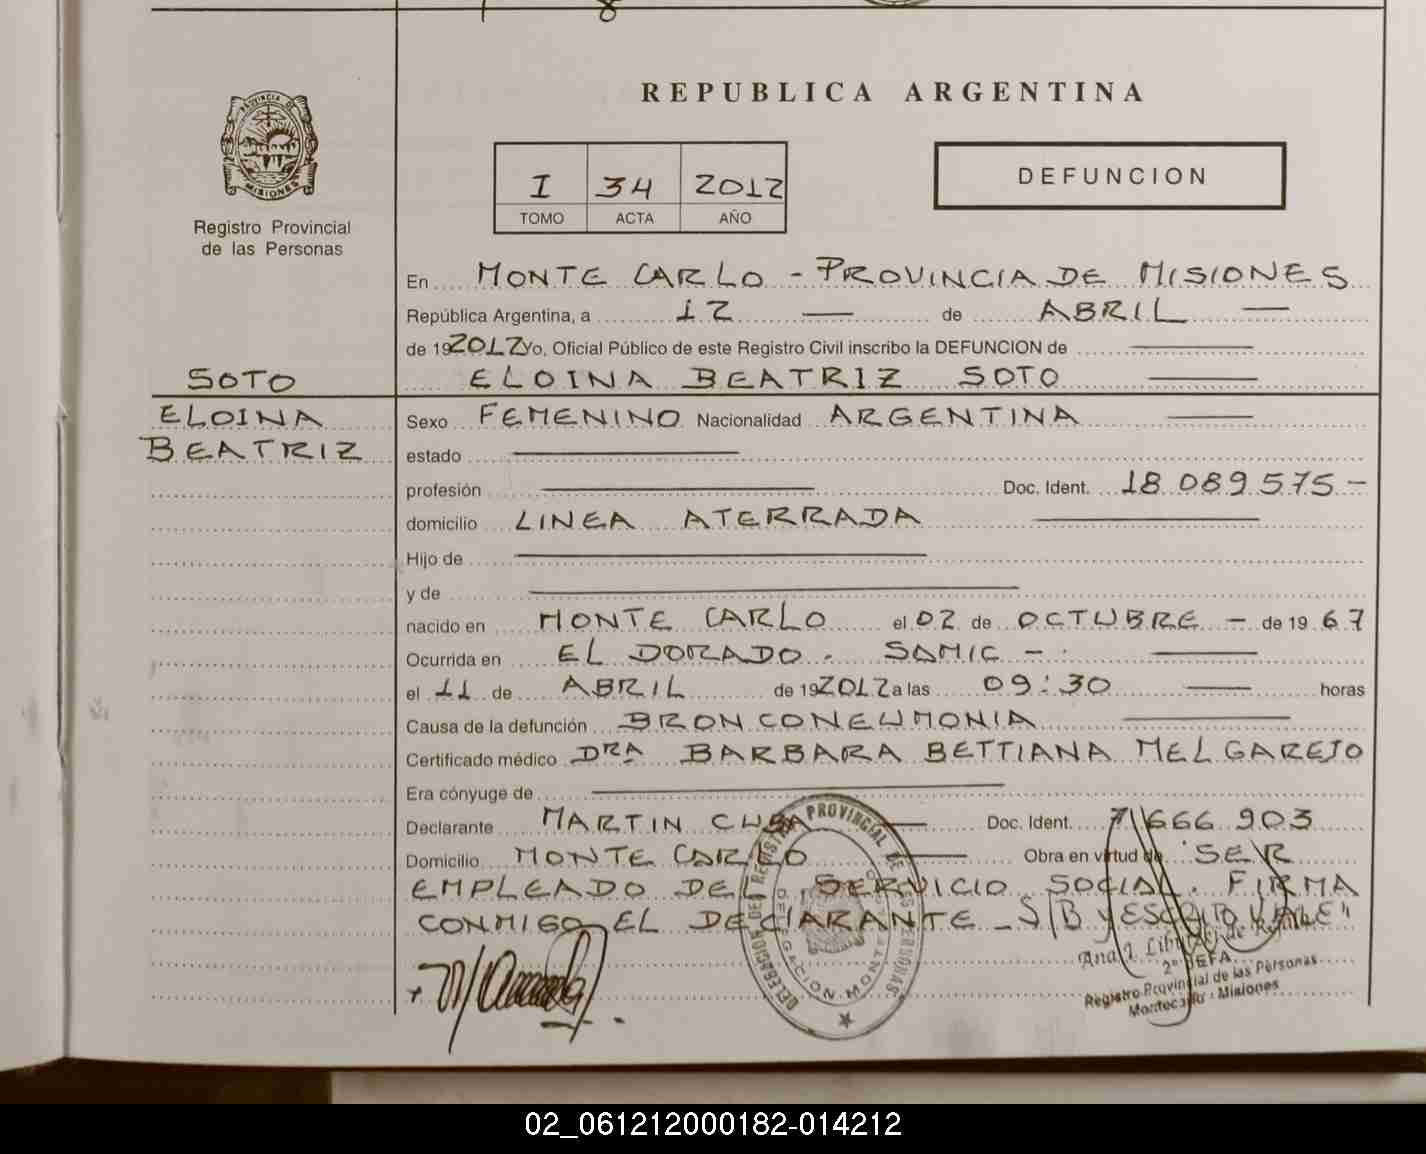 REPUBLICA ARGENTINA
PROVINCIA DE
MISIONES
Registro Provincial
de las Personas
I 34 2012
TOMO ACTA AÑO
DEFUNCION
En MONTE CARLO - PROVINCIA DE MISIONES
República Argentina, a 12 — de ABRIL —
de 192012 Yo, Oficial Público de este Registro Civil inscribo la DEFUNCION de —
ELOINA BEATRIZ SOTO —
SOTO
ELOINA
BEATRIZ
Sexo FEMENINO Nacionalidad ARGENTINA —
estado —
profesión — Doc. Ident. 18 089 575 -
domicilio LINEA ATERRADA —
Hijo de —
y de —
nacido en MONTE CARLO el 02 de OCTUBRE - de 19 67
Ocurrida en EL DORADO. SAMIC - —
el 11 de ABRIL de 192012 a las 09:30 — horas
Causa de la defunción BRONCONEUMONIA —
Certificado médico DRA BARBARA BETTIANA MELGAREJO
Era cónyuge de —
Declarante MARTIN — Doc. Ident. 7 666 903
Domicilio MONTE CARLO — Obra en virtud de SER
EMPLEADO DEL SERVICIO SOCIAL. FIRMA
CONMIGO EL DECLARANTE - S/B y ESCRITO VALE"
DELEGACION DEL REGISTRO PROVINCIAL DE LAS PERSONAS
DELEGACION MONTE
Ana
2° JEFA
Registro Provincial de las Personas
Montecarlo - Misiones
02_061212000182-014212